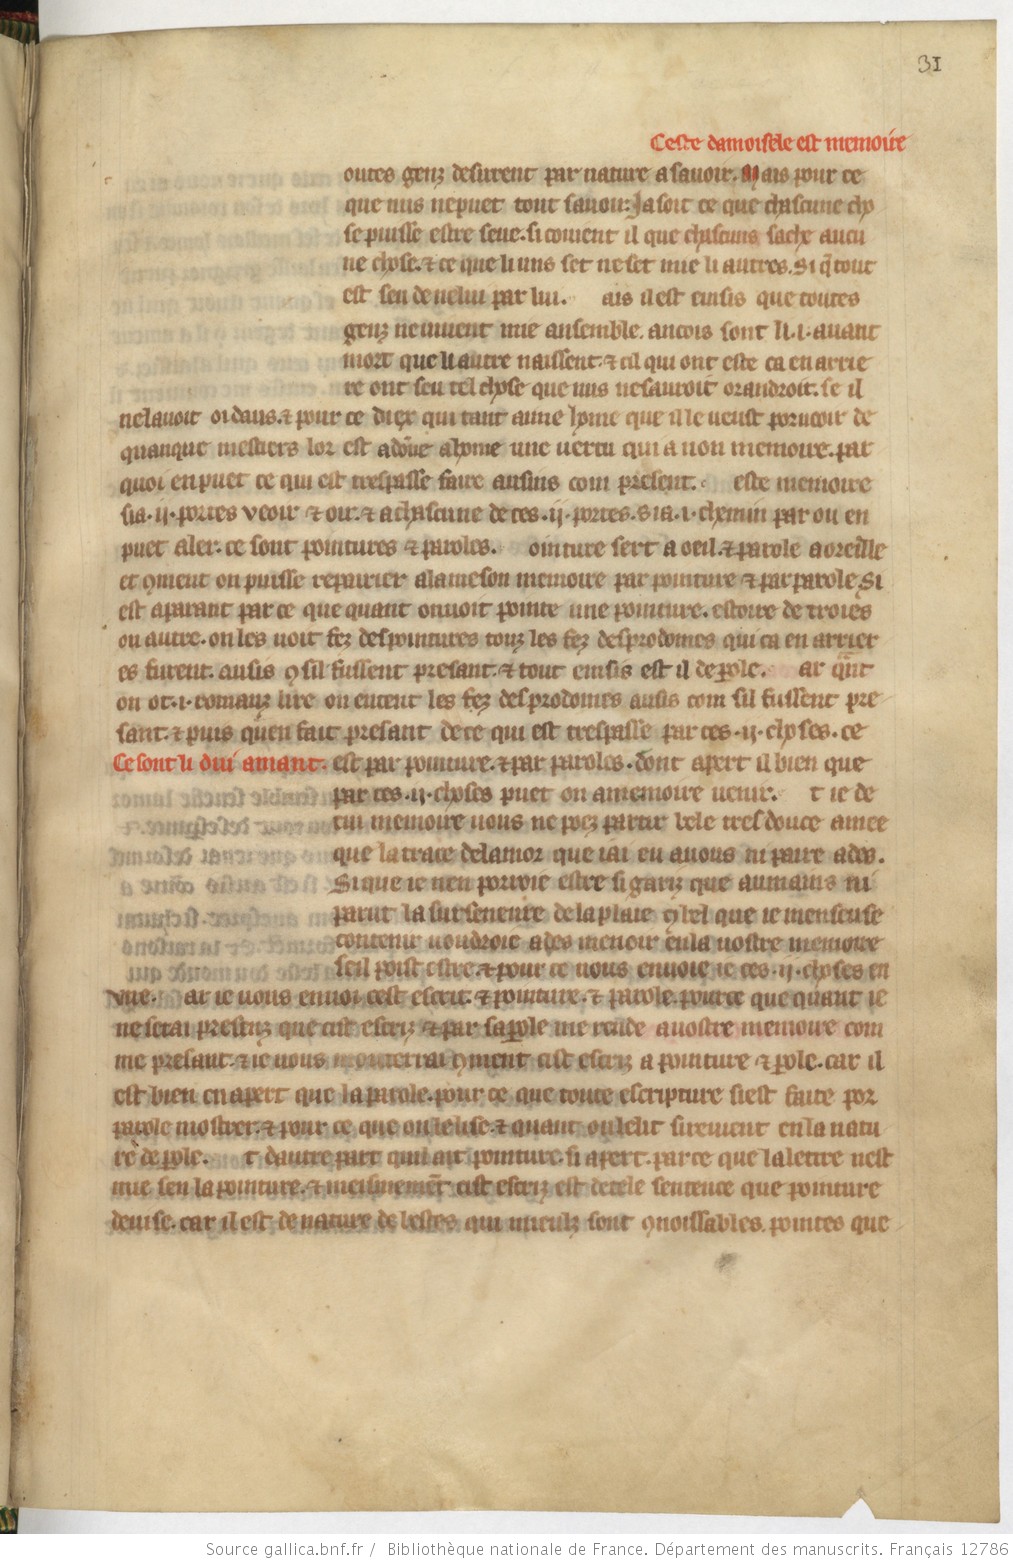 31
Ceste damoisele est memoire
outes genz desirent par nature a savoir. Mais pour ce
que nus ne puet tout savoir: Ja soit ce que chascune cho
se puisse estre seue. si covient il que chascuns sache aucu
ne chose. & ce que li uns set ne set mie li autres. Si q̃ tout
est seu de nelui par lui. ais il est einsis que toutes
genz ne vivent mie ansemble. ancois sont li .i. avant
mort que li autre naissent. & cil qui ont este ca en arrie
re ont seu tel chose que nus ne sauroit orandroit. se il
ne lavoit oi dans. & pour ce diex qui tant aime home que il le veust porveoir de
quanque mestiers lor est a done a home une vertu qui a non memoire. par
quoi en puet ce qui est trespasse faire ausins com present. este memoire
si a .ii. portes veoir & oir. & a chascune de ces .ii. portes. si a .i. chemin par ou en
puet aler. ce sont pointures & paroles. ointure sert a oeil. & parole a oreille
et 9ment on puisse repairier a la meson memoire par pointure & par parole. Si
est aparant par ce que quant on voit pointe une pointure. estoire de troies
ou autre. on les voit fez des pointures touz les fez des prodomes qui ca en arrier
es furent. ausis 9 sil fussent presant. & tout einsis est il de p̲ole. ar q̃nt
on ot .i. romanz lire on entent les fez des prodomes ausis com sil fussent pre
sant. & puis quen fait presant de ce qui est trespasse par ces .ii. choses. ce
Ce sont li dui amant. est par pointure. & par paroles. dont apert il bien que
par ces .ii. choses puet on a memoire venir. t ie de
cui memoire vous ne poez partir bele tres douce amee
que la trace de lamor que iai eu a vous ni paire ades.
Si que ie nen porroie estre si gariz que au mains ni
parut la surseneure de la plaie 9 bel que ie men seuse
contenir voudroie ades menoir en la vostre memoire
seil poist estre. & pour ce vous envoie ie ces .ii. choses en
vne. ar ie vous envoi cest escrit. & pointure. & parole. pour ce que quant ie
ne serai presenz que cist escriz & par sa p̲ole me rende a vostre memoire com
me presant. & ie vous monterrai 9ment cist escriz a pointure & p̲ole. car il
est bien en apert que la parole. pour ce que toute escripture si est faite por
parole mostrer. & pour ce que on le lise. & quant on le lit si revient en la natu
re de p̲ole. t dautre part quil ait pointure. si apert. par ce que la lettre nest
mie sen la pointure. & meismemẽt cist escriz est de tele sentence que pointure
devise. car il est de nature de bestes qui mieulz sont 9noissables. pointes que
Source gallica.bnf.fr / Bibliothèque nationale de France. Département des manuscrits. Français 12786